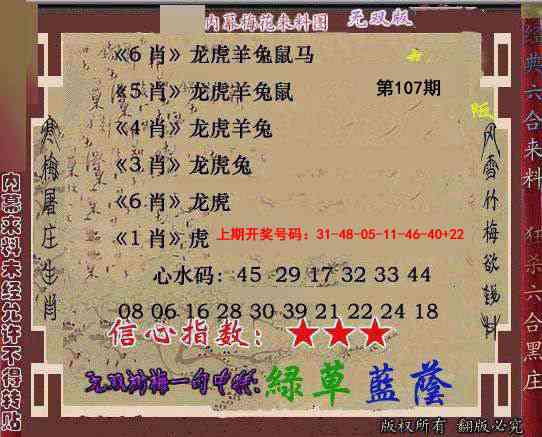 内幕梅花来料图 无双版
《6 肖》龙虎羊兔鼠马
《5 肖》龙虎羊兔鼠
第107期
《4 肖》龙虎羊兔
《3 肖》龙虎兔
《6 肖》龙虎
《1 肖》虎
上期开奖号码：31-48-05-11-46-40+22
心水码：45 29 17 32 33 44
08 06 16 28 30 39 21 22 24 18
信心指数：★★★
无双
梅一句中特:綠草藍蔭
版权所有 翻版必究
寒梅屠庄生肖
风雪竹梅欲
内幕来料未经允许不得转贴
经典六合来料 狂杀六合黑庄